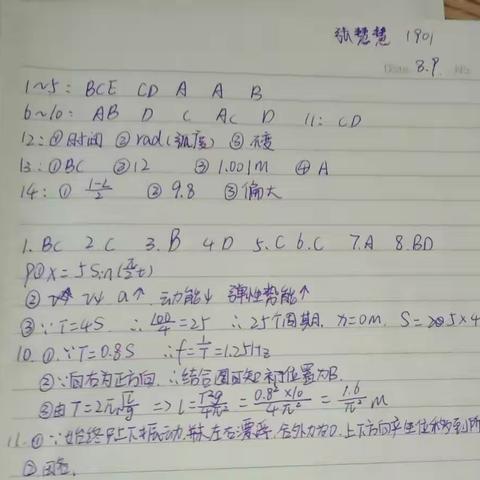 张慧慧 1901
8.9.
1~5: BCE CD A A B
6~10: AB D C AC D 11: CD
12: ①时间 ② rad(弧度) ③ 不变
13: ①BC ②12 ③ 1.001m ④ A
14: ① ② 9.8 ③偏大
1. BC 2 C 3. B 4 D 5. C 6. C 7. A 8. BD
9①x=5sin(π/2 t)
② v↓ a↑ 动能↓ 弹性势能↑
③∵T=4S ∴100/4=25 ∴25个周期, x=0m, S=20×5×4
10. ①∵T=0.8S ∴f=1/T=1.25Hz
②∵向右为正方向, ∴结合图可知 位置为B.
③由T=2π√(L/g) => L=T²g/4π²=0.8²×10/4π²=1.6/π² m
11. ①∵ 始终 上下振动,并未左右漂移, 合外力为0, 上下方向产生位移
②